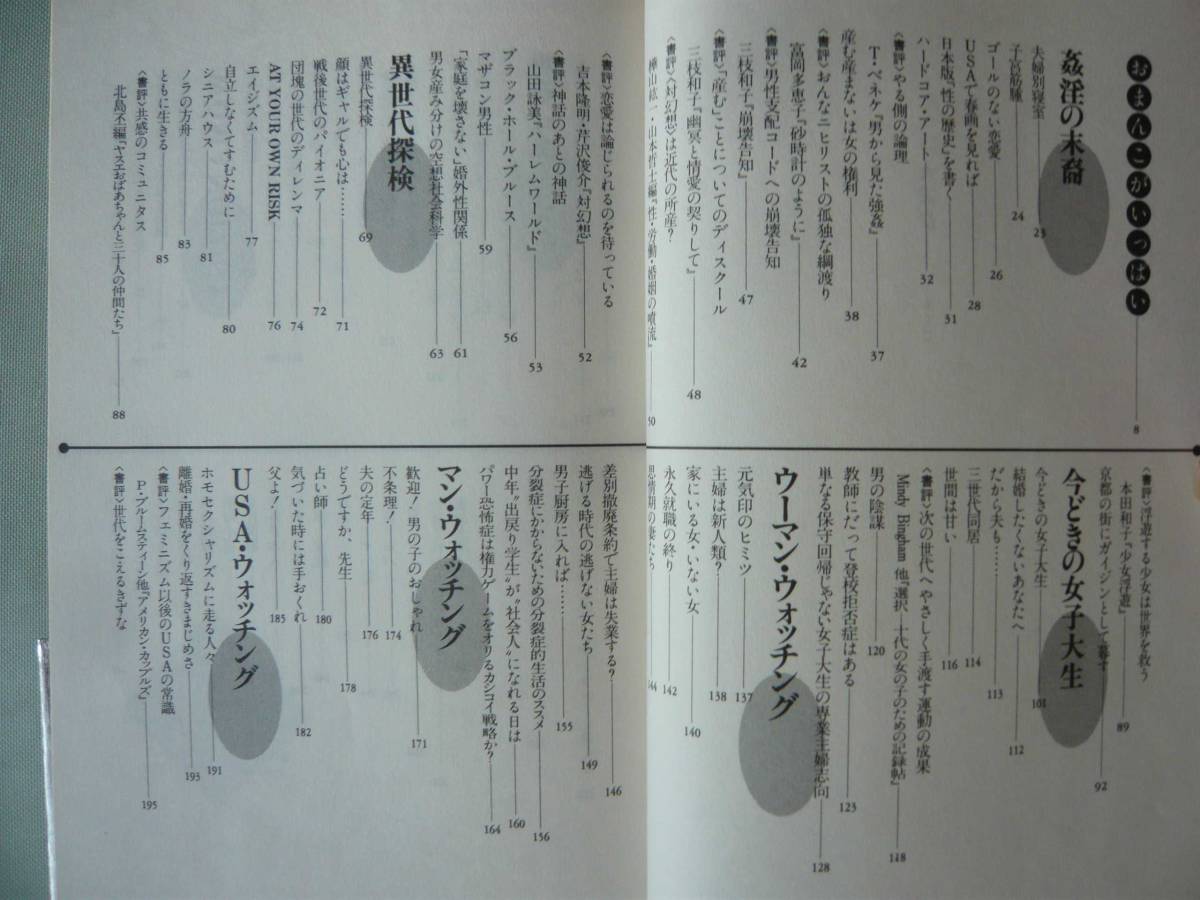 おまんこがいっぱい 8
姦淫の末裔
夫婦別寝室 23
子宮筋腫 24
ゴールのない恋愛 26
USAで春画を見れば 28
日本版『性の歴史』を書く 31
ハードコア・アート 32
〈書評〉やる側の論理
T・ベネケ『男から見た強姦』 37
産む産まないは女の権利 38
〈書評〉おんなニヒリストの孤独な綱渡り
富岡多恵子『砂時計のように』 42
〈書評〉男性支配コードへの崩壊告知
三枝和子『崩壊告知』 47
〈書評〉「産む」ことについてのディスクール
三枝和子『幽冥と情愛の契りして』 48
〈書評〉〈対幻想〉は近代の所産?
樺山紘一・山本哲士編『性・労働・婚姻の噴流』 50
〈書評〉恋愛は論じられるのを待っている
吉本隆明・芹沢俊介『対幻想』 52
〈書評〉神話のあとの神話
山田詠美『ハーレムワールド』 53
ブラック・ホール・ブルース 56
マザコン男性 59
「家庭を壊さない」婚外性関係 61
男女産み分けの空想社会科学 63
異世代探検
異世代探検 69
顔はギャルでも心は…… 71
戦後世代のパイオニア 72
団塊の世代のディレンマ 74
AT YOUR OWN RISK 76
エイジズム 77
自立しなくてすむために 80
シニアハウス 81
ノラの方舟 83
ともに生きる 85
〈書評〉共感のコミュニタス
北島不編『ヤスエおばあちゃんと三十人の仲間たち』 88
〈書評〉浮遊する少女は世界を救う
本田和子『少女浮遊』 89
京都の街にガイジンとして暮す 92
今どきの女子大生
今どきの女子大生 101
結婚したくないあなたへ 112
だから夫も…… 113
三世代同居 114
世間は甘い 116
〈書評〉次の世代へやさしく手渡す運動の成果
Mindy Bingham 他『選択 十代の女の子のための記録帖』 118
男の陰謀 120
教師にだって登校拒否症はある 123
単なる保守回帰じゃない女子大生の専業主婦志向 128
ウーマン・ウォッチング
元気印のヒミツ 137
主婦は新人類? 138
家にいる女・いない女 140
永久就職の終り 142
思惰期の妻たち 144
差別撤廃条約で主婦は失業する? 146
逃げる時代の逃げない女たち 149
男子厨房に入れば…… 155
分裂症にかからないための分裂症的生活のススメ 156
中年〝出戻り学生〟が〝社会人〟になれる日は 160
パワー恐怖症は権力ゲームをオリるカシコイ戦略か? 164
マン・ウォッチング
歓迎! 男の子のおしゃれ 171
不条理! 174
夫の定年 176
どうですか、先生 178
占い師 180
気づいた時には手おくれ 182
父よ! 185
USA・ウォッチング
ホモセクシャリズムに走る人々 191
離婚・再婚をくり返すきまじめさ 193
〈書評〉フェミニズム以後のUSAの常識
P・ブルームスティーン他『アメリカン・カップルズ』 195
〈書評〉世代をこえるきずな